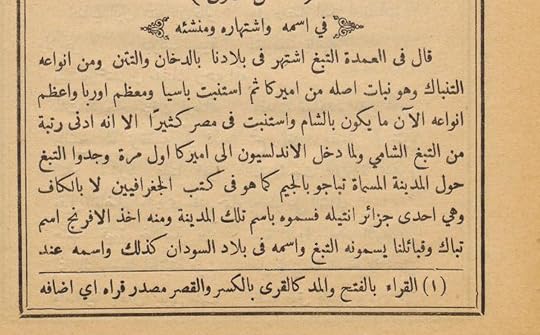 في اسمه واشتهاره ومنشئه
قال فى العمدة التبغ اشتهر فى بلادنا بالدخان والتتن ومن انواعه
التنباك وهو نبات اصله من اميركا ثم استنبت باسيا ومعظم اوربا واعظم
انواعه الآن ما يكون بالشام واستنبت فى مصر كثيرًا الا انه ادنى رتبة
من التبغ الشامي ولما دخل الاندلسيون الى اميركا اول مرة وجدوا التبغ
حول المدينة المسماة تباجو بالجيم كما هو فى كتب الجغرافيين لا بالكاف
وهي احدى جزائر انتيله فسموه باسم تلك المدينة ومنه اخذ الافرنج اسم
تباك وقبائلنا يسمونه التبغ واسمه فى بلاد السودان كذلك واسمه عند
(١) القراء بالفتح والمد كالقرى بالكسر والقصر مصدر قراه اي اضافه